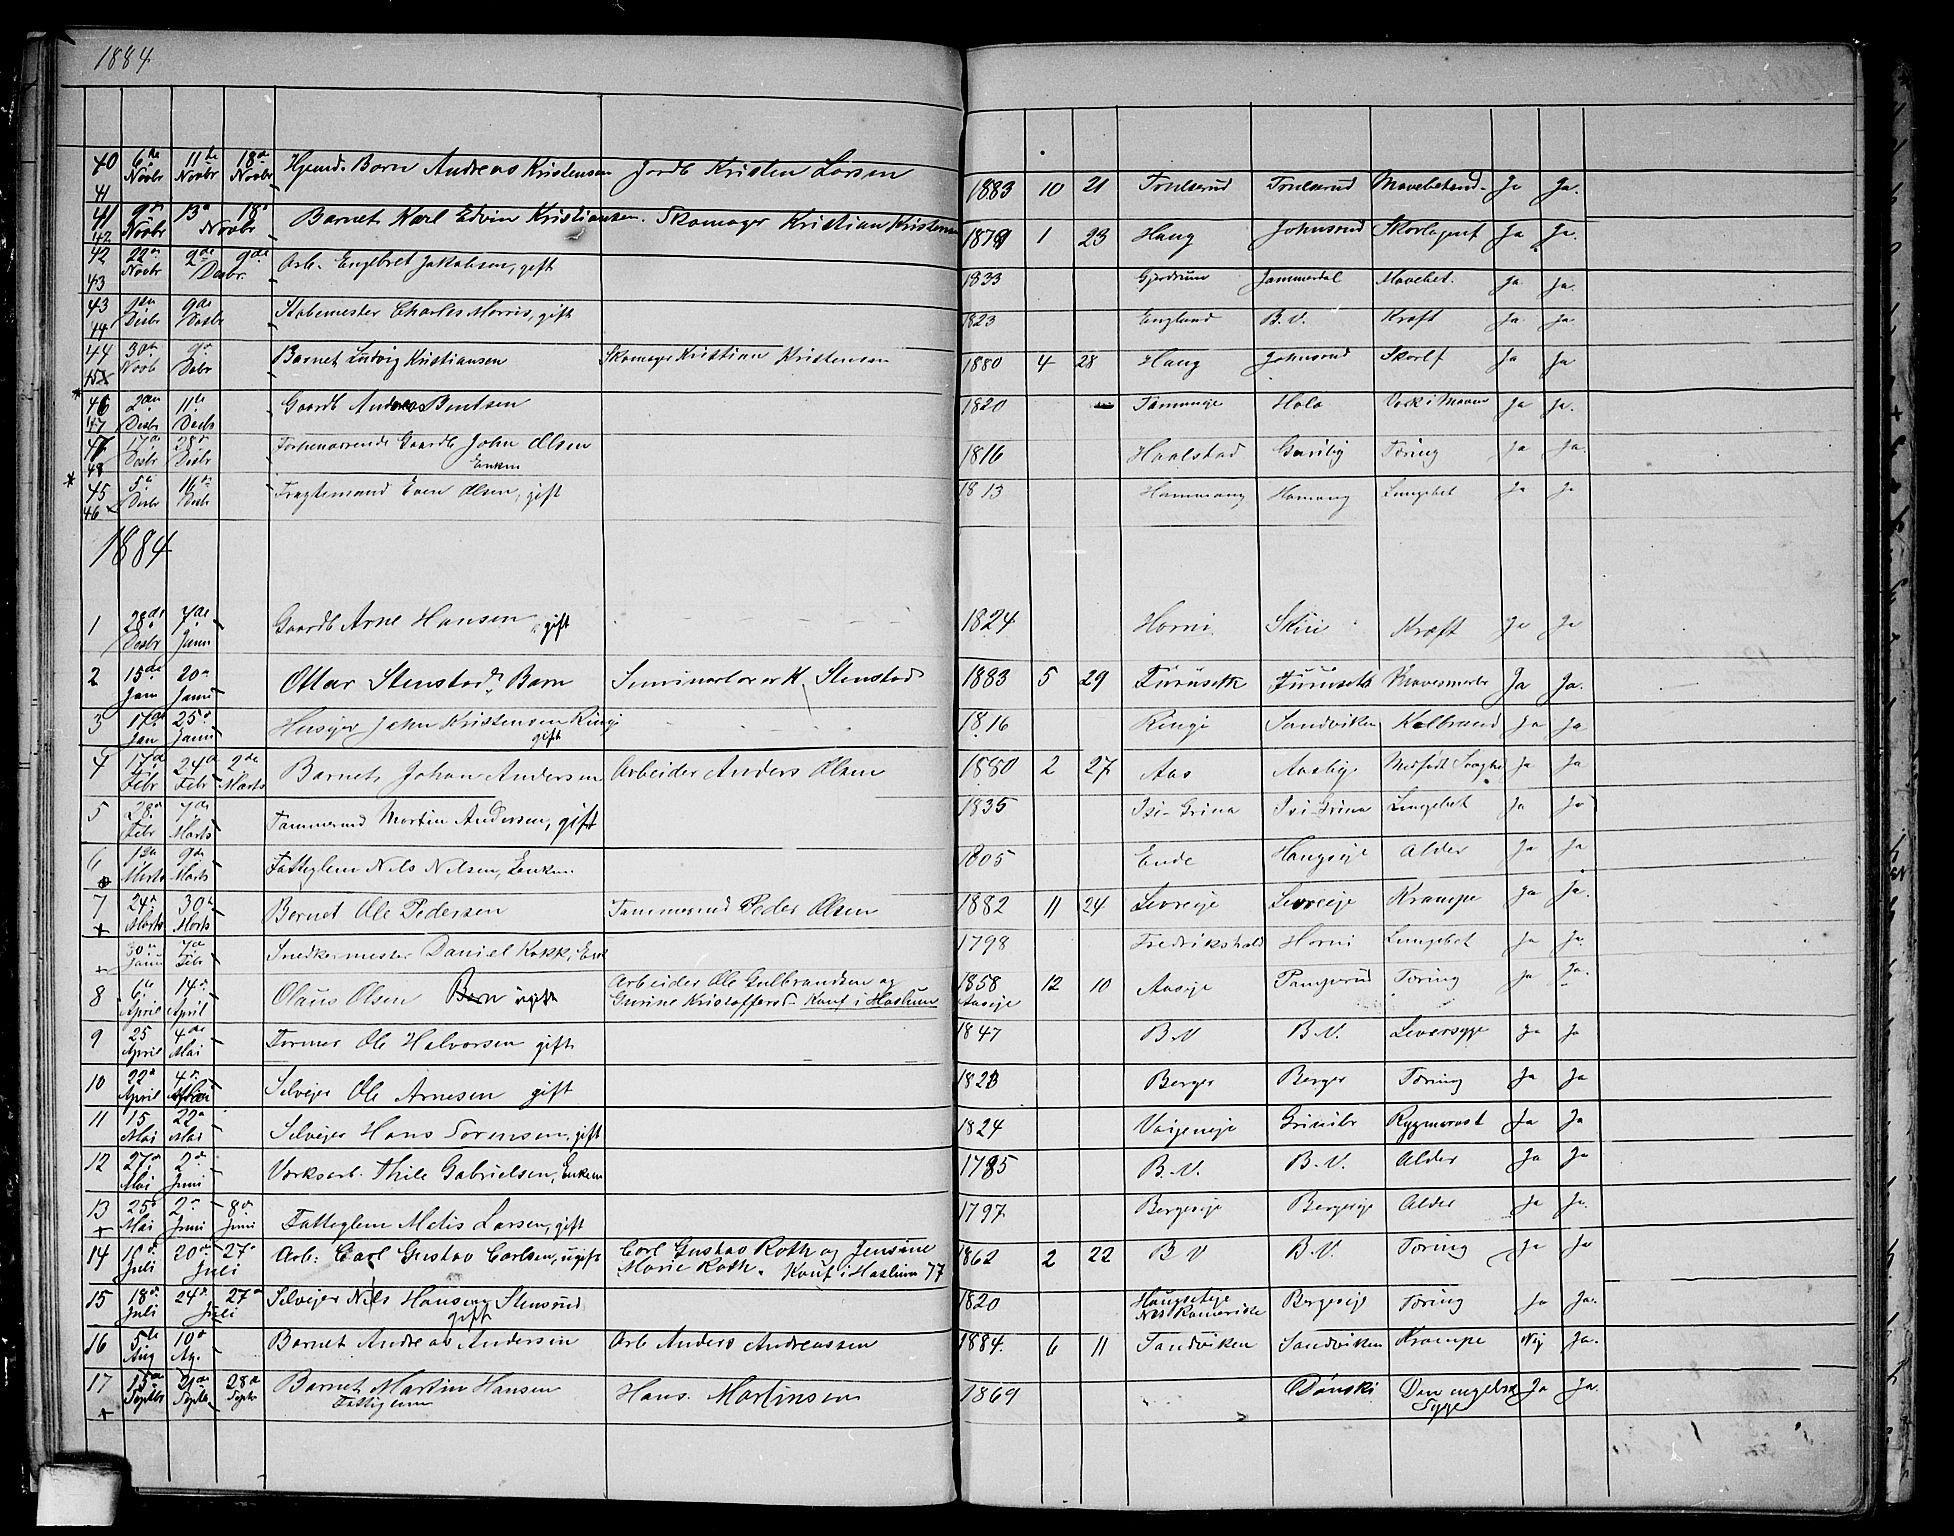 1884
40 6de Novbr 11te Novbr 18de Novbr Hjemd. Barn Andreas Kristensen Jordb Kristen Larsen 1883 10 21 Toulserud Toulserud Mavebetænd. Ja Ja.
41
41 9de Novbr 13de 18de Novbr Barnet Karl Edvin Kristiansen. Skomager Kristian Kristensen 1879 1 23 Haug Johnsrud Skarlagenf Ja Ja.
42
42 22de Novbr 2de 9de Desbr. Arb. Engebret Jakobsen, gift 1833 Gjerdrum Jammerdal Mavebet. Ja Ja.
43
43 1ste Desbr 9de Desbr Stabemester Charles Morris, gift 1823 England B.V. Kræft Ja Ja
44
44 30te Novb 9de Debr Barnet Ludvig Kristiansen Skomager Kristian Kristensen 1880 4 28 Haug Johnsrud Skarlf Ja Ja
45
46 2den Desbr 11te Desbr Gaardb Andreas Bentsen 1820 Tammeje Holo Værk i Maven Ja Ja.
47
47 17de Desbr 28de Desbr Forhenværende Gaardb John Olsen 1816 Haalstad Tæring Ja Ja
Enkem
48
45 5te Desbr 16de Desbr Fragtemand Even Olsen, gift 1813 Hammang Hamang Lungebet Ja Ja
46
1884
1 28de Desbr 7de Janu Gaardb Arne Hansen, gift 1824 Horni Skui Kræft Ja Ja
2 15de Jan 20de Janu Ottar Stenstads Barn Seminarlærer K. Stenstad 1883 5 29 Furuseth Furuseth Ja Ja.
3 17de Jan 25de Janu Husejer John Kristensen Ringi 1816 Ringi Sandviken Kolbrand Ja Ja
gift
4 17de Febr 24de Febr 2de Marts Barnet Johan Andersen Arbeider Anders Olsen 1880 2 27 Aas Aasbye Medfødt Svaghe Ja Ja
5 28de Febr 7de Marts Tømmermd Martin Andersen, gift 1835 Isi-Grina Isi-Grina Lungebet Ja Ja
6 1ste Marts 9de Marts Fatteglem Nils Nilsen, Enkem. 1805 Ende Haugseje Alder Ja Ja
7 24de Marts 30te Marts Barnet Ole Pedersen Tømmermd Peder Olsen 1882 11 24 Levreije Levreije Krampe Ja Ja.
+ 30te Janu 7de Febr Snedkermester Daniel Kokk, Enk 1798 Fredrikshald Horni Lungebet Ja Ja.
8 6te April 14de April Olaus Olsen Barn ugift Arbeider Ole Gulbrandsen og 1858 12 10 Aaseje Pamperud Tæring Ja Ja.
Gurine Kristoffersd. Konf i Haslum Aaseje
9 25 April 4de Mai Former Ole Halvorsen gift 1847 B.V B.V. Leversyge Ja Ja
10 22de April 4de Selvejer Ole Arnesen gift 1823 Berger Berger Tæring Ja Ja
11 15 Mai 22de Mai Selvejer Hans Sorensen, gift 1824 Vøijeneje Grinilr Rygmarvst Ja Ja
12 27de Mai 2de Juni Værksarb. Thile Gabrielsen, Enkem 1785 B.V. B.V. Alder Ja Ja
13 25de Mai 2de Juni 8de Juni Fatteglem Matis Larsen, gift 1797 Bergeseje Bergeseje Alder Ja Ja.
14 16de Juli 20de 27de Juli Arb: Carl Gustav Carlsen, ugift Carl Gustav Roth og Jensine 1862 2 22 B V B.V. Tæring Ja Ja
Marie Roth. Konf i Haslum 77
15 18de Juli 24de 27de Juli Selvejer Nils Hansen Stensrud 1820 Haugseteje Bergeseje Tæring Ja Ja.
gift Nes Romerike
16 5te Aug 10de Ag. Barnet Andreas Andersen Arb Anders Andreassen 1884. 6 11 Sandviken Sandviken Krampe Nej Ja.
17 15de Septbr 21de Septb. 28de Septbr Barnet Martin Hansen Hans. Martinsen 1869 Dønski Den engelske Ja Ja.
Fattiglem Syge